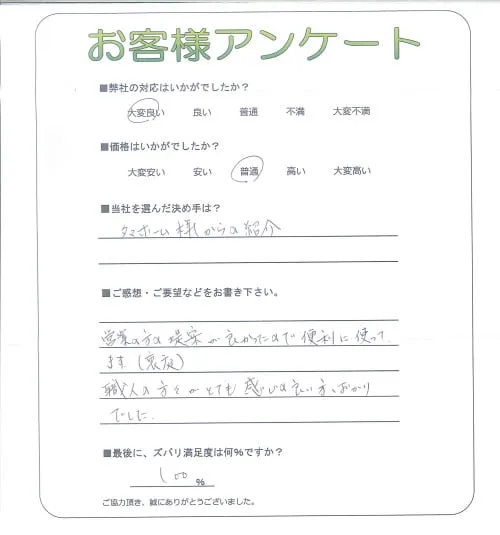 お客様アンケート
■弊社の対応はいかがでしたか?
大変良い 良い 普通 不満 大変不満
■価格はいかがでしたか?
大変安い 安い 普通 高い 大変高い
■当社を選んだ決め手は?
タマホーム様からの紹介
■ご感想・ご要望などをお書き下さい。
営業の方の提案が良かったので便利に使って
ます(裏庭)
職人の方々がとても感じの良い方ばかり
でした.
■最後に、ズバリ満足度は何%ですか?
100 %
ご協力頂き、誠にありがとうございました。